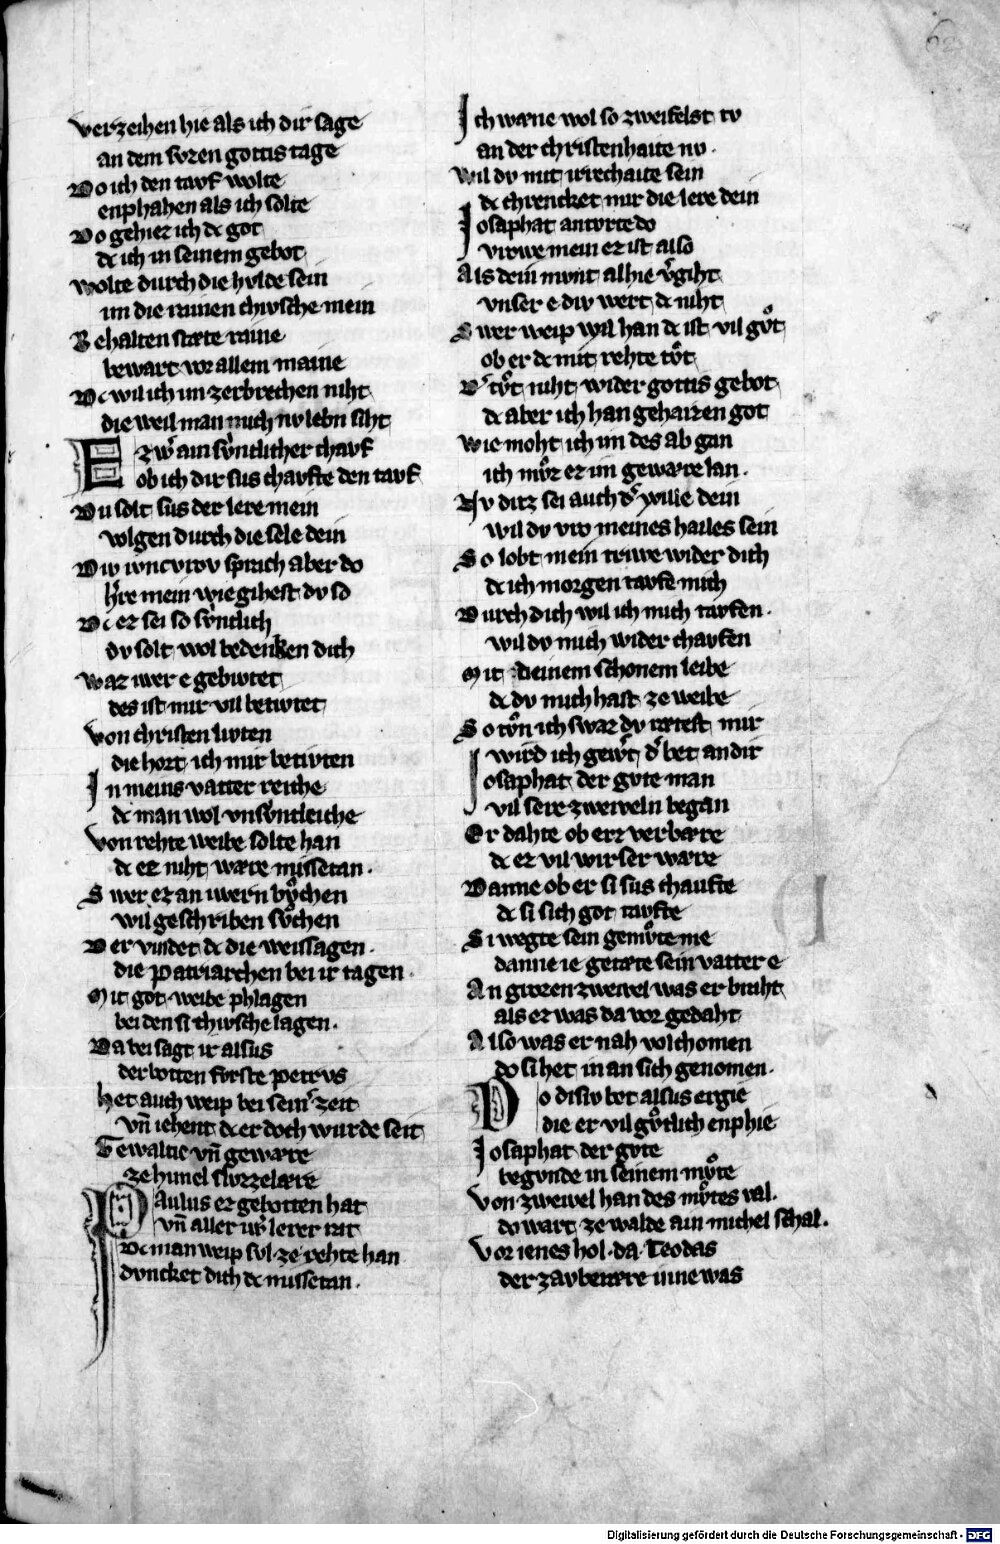 verzeihen hie als ich dir sage
an dem svzen gottis tage
Do ich den tavf wolte
enphahen als ich solte
Do gehiez ich dc got
dc ich in seinem gebot
wolte durch die hvlde sein
im die rainen chivsche mein
Behalten stæte raine
bewart vor allem maine
Dc wil ich im zerbrechen niht
die weil man mich nv lebn siht
Ezwͦ ain svͤntlicher chavf
ob ich dir sus chavfte den tavf
Du solt sus der lere mein
volgen durch die sele dein
Div ivncvrov sprach aber do
hͤre mein wie gihest dv so
Dc ez sei so svͤntlich
dv solt wol bedenken dich
waz iwer e gebivtet
des ist mir vil betivtet
von christen livten
die hort ich mir betivten
In meins vatter reiche
dc man wol vnsvͤntleiche
von rehte weibe solte han
dc ez niht wære missetan.
Swer ez an iwern bvͦchen
wil geschriben svͦchen
Der vindet dc die weissagen.
die patriarchen bei ir tagen.
Mit got weibe phlagen
bei den si chivsche lagen.
Da bei sagt ir alsus
der botten fvrste petrvs
het auch weip bei seinͬ zeit
vn̄ iehent dc er doch wurde seit
Gewaltic vn̄ gewære
ze himel slvzzelære
Paulus ez gebotten hat
vn̄ aller iwͬ lerer rat
Dc man weip svl ze rehte han
dvncket dich dc missetan.
Ich wæne wol so zweifelst tv
an der christenhaite nv.
Wil dv mit irrechaite sein
dc chrencket mir die lere dein
Iosaphat antorte do
vrowe mein ez ist also
Als dein mvnt alhie vͬgiht
vnser e div wert dc niht
Swer weip wil han dc ist vil gvͦt
ob er dc mit rehte tvͦt
Dͬ tvͦt niht wider gottis gebot
dc aber ich han gehaizen got
wie moht ich im des ab gan
ich mvͦz ez im gewære lan.
Nv ditz sei auch dͬ wille dein
wil dv vro meines hailes sein
So lobt mein triwe wider dich
dc ich morgen tavfe mich
Durch dich wil ich mich tavfen.
wil dv mich wider chavfen
Mit deinem schonem leibe
dc dv mich hast ze weibe
So tvͦn ich swaz dv rætest mir
wird ich gewͬt dͬ bet an dir
Iosaphat der gvte man
vil sere zweiveln began
Er dahte ob erz verbære
dc ez vil wirser wære
Danne ob er si sus chaufte
dc si sich got tavfte
Si wegte sein gemvͤte me
danne ie getæte sein vatter e
An grozen zweivel was er braht
als er was da vor gedaht
Also was er nah volchomen
do si het in an sich genomen.
Do disiv bet alsus ergie
die er vil gvͤtlich enphie
Iosaphat der gvte
begvnde in seinem mvͦte
Von zweivel han des mvͦtes val.
do wart ze walde ain michel schal.
Vor ienes hol. da Teodas
der zavberære inne was
Digitalisierung gefördert durch die Deutsche Forschungsgemeinschaft - DFG